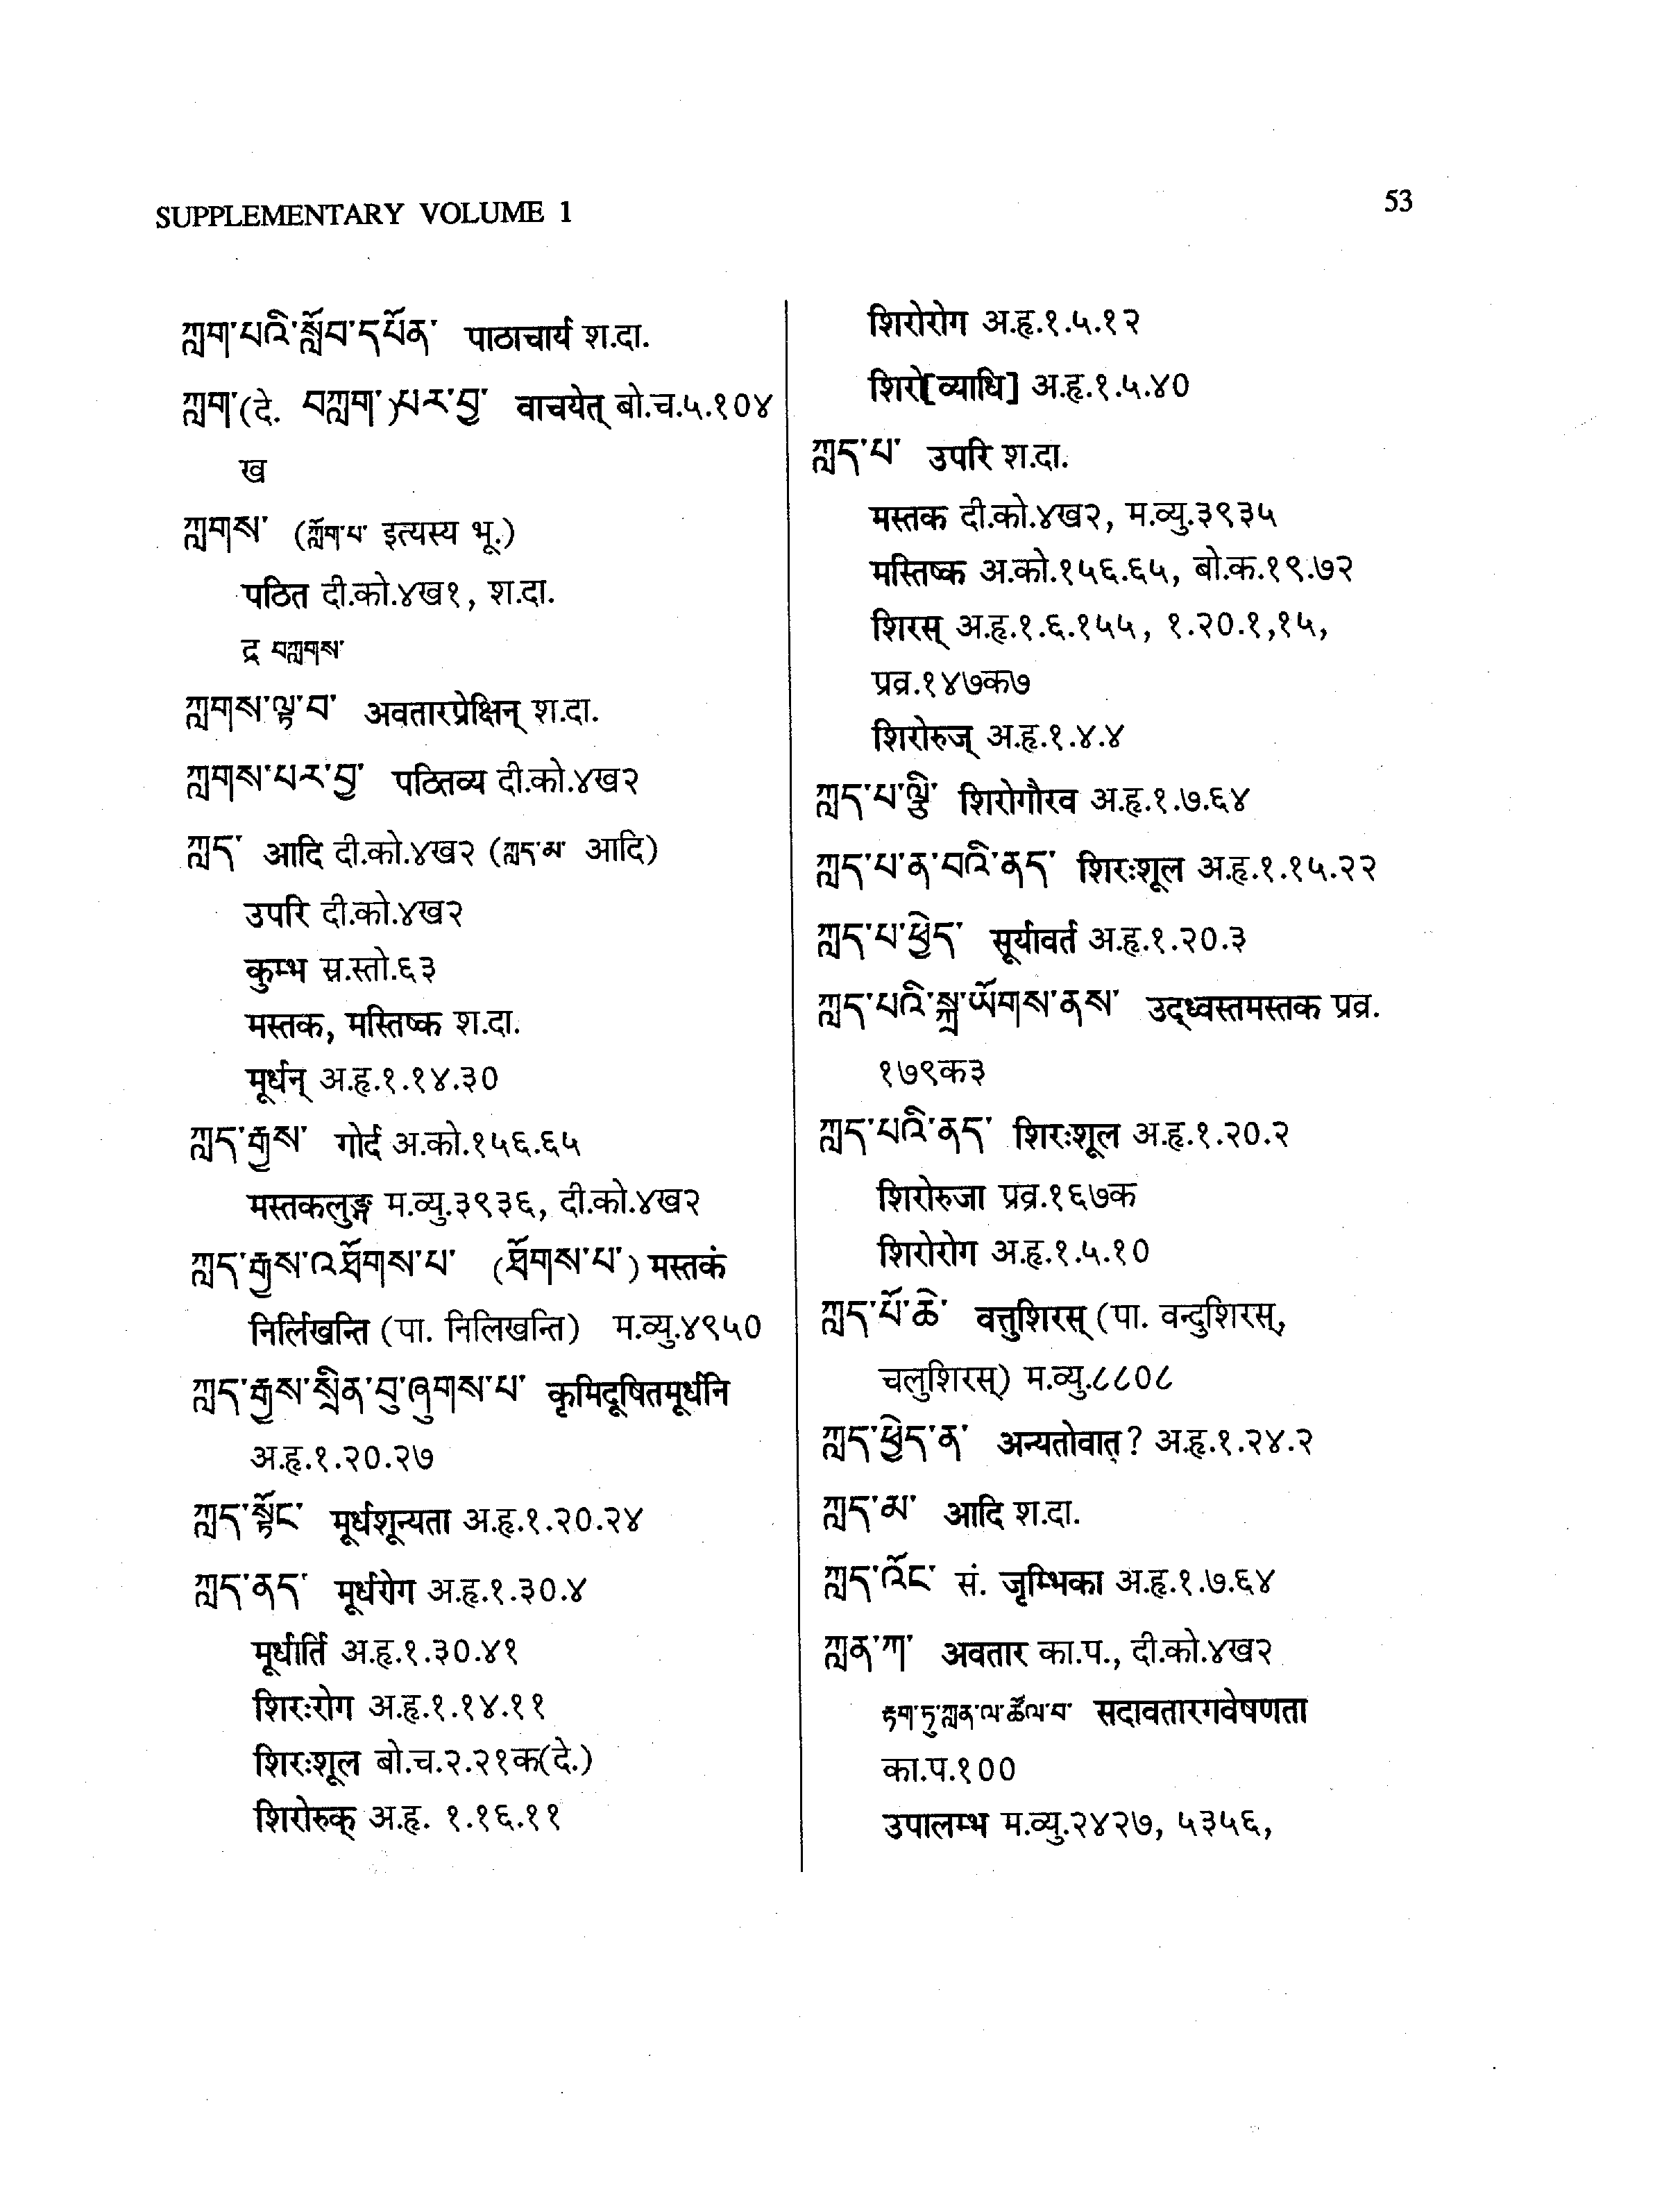 SUPPLEMENTARY VOLUME 1
53
ཀླག་པའི་སློབ་དཔོན་ पाठाचार्य श.दा.
ཀླག་(दे. བཀླག་)པར་བྱ་ वाचयेत् बो.च.५.१०४
ख
ཀླགས་ (ཀློག་པ་ इत्यस्य भू.)
पठित दी.को.४ख१, श.दा.
द्र བཀླགས་
ཀླགས་ལྟ་བ་ अवतारप्रेक्षिन् श.दा.
ཀླགས་པར་བྱ་ पठितव्य दी.को.४ख२
ཀླད་ आदि दी.को.४ख२ (ཀླད་མ་ आदि)
उपरि दी.को.४ख२
कुम्भ स्र.स्तो.६३
मस्तक, मस्तिष्क श.दा.
मूर्धन् अ.हृ.१.१४.३०
ཀླད་རྒྱས་ गोर्द अ.को.१५६.६५
मस्तकलुङ्ग म.व्यु.३९३६, दी.को.४ख२
ཀླད་རྒྱས་འཐོགས་པ་ (ཐོགས་པ་) मस्तकं
निर्लिखन्ति (पा. निलिखन्ति) म.व्यु.४९५०
ཀླད་རྒྱས་སྲིན་བུ་ཞུགས་པ་ कृमिदूषितमूर्धनि
अ.हृ.१.२०.२७
ཀླད་སྟོང་ मूर्धशून्यता अ.हृ.१.२०.२४
ཀླད་ནད་ मूर्धरोग अ.हृ.१.३०.४
मूर्धार्ति अ.हृ.१.३०.४१
शिरःरोग अ.हृ.१.१४.११
शिरःशूल बो.च.२.२१क(दे.)
शिरोरुक् अ.हृ. १.१६.११
शिरोरोग अ.हृ.१.५.१२
शिरो[व्याधि] अ.हृ.१.५.४०
ཀླད་པ་ उपरि श.दा.
मस्तक दी.को.४ख२, म.व्यु.३९३५
मस्तिष्क अ.को.१५६.६५, बो.क.१९.७२
शिरस् अ.हृ.१.६.१५५, १.२०.१,१५,
प्रव्र.१४७क७
शिरोरुज् अ.हृ.१.४.४
ཀླད་པ་ལྕི་ शिरोगौरव अ.हृ.१.७.६४
ཀླད་པ་ན་བའི་ནད་ शिरःशूल अ.हृ.१.१५.२२
ཀླད་པ་ཕྱེད་ सूर्यावर्त अ.हृ.१.२०.३
ཀླད་པའི་སྐྲ་ཡོགས་ནས་ उद्ध्वस्तमस्तक प्रव्र.
१७९क३
ཀླད་པའི་ནད་ शिरःशूल अ.हृ.१.२०.२
शिरोरुजा प्रव्र.१६७क
शिरोरोग अ.हृ.१.५.१०
ཀླད་པོ་ཆེ་ वत्तुशिरस् (पा. वन्दुशिरस्,
चलुशिरस्) म.व्यु.८८०८
ཀླད་ཕྱེད་ན་ अन्यतोवात्? अ.हृ.१.२४.२
ཀླད་མ་ आदि श.दा.
ཀླད་འོང་ सं. जृम्भिका अ.हृ.१.७.६४
ཀླན་ཀ་ अवतार का.प., दी.को.४ख२
རྟག་ཏུ་ཀླན་ལ་ཚོལ་བ་ सदावतारगवेषणता
का.प.१००
उपालम्भ म.व्यु.२४२७, ५३५६,